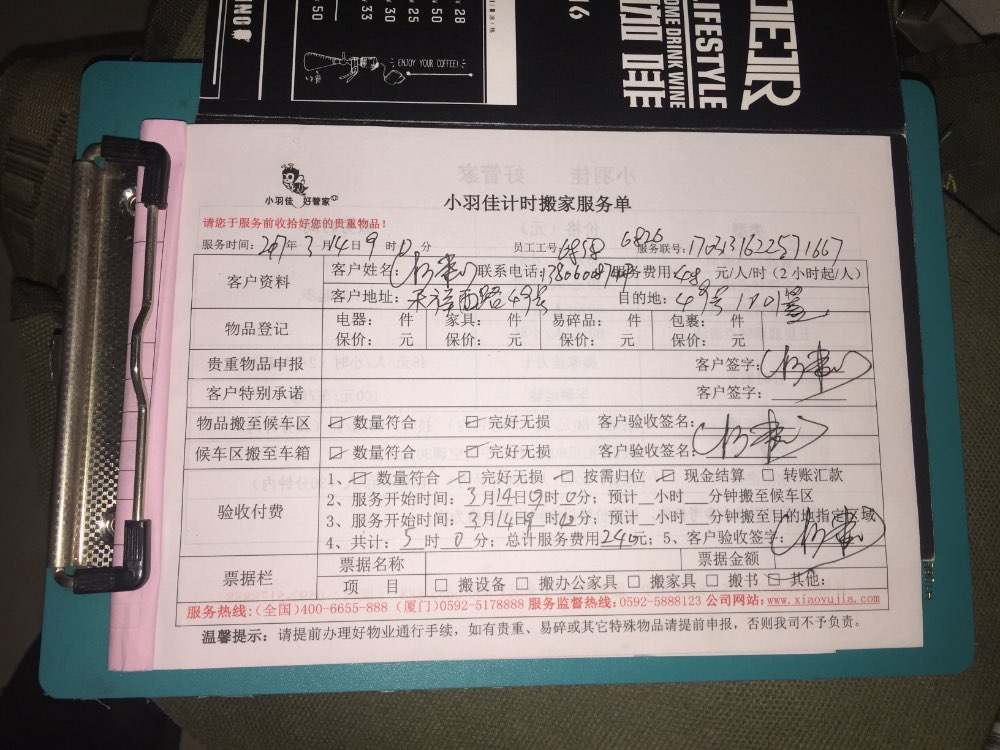 ENJOY YOUR COFFEE!
LIFESTYLE
OME DRINK WINE
咖啡
小羽佳 好管家
小羽佳计时搬家服务单
请您于服务前收拾好您的贵重物品!
服务时间: 2017年 3月14日9时 分 员工工号: 6858 6826 服务联号:
客户资料 客户姓名: 联系电话: 服务费用 48 元/人/时(2小时起/人)
客户地址: 49号 目的地: 49号
物品登记 电器: 件 家具: 件 易碎品: 件 包裹: 件
保价: 元 保价: 元 保价: 元 保价: 元
贵重物品申报 客户签字:
客户特别承诺 客户签字:
物品搬至候车区 数量符合 完好无损 客户验收签名:
候车区搬至车箱 数量符合 完好无损 客户验收签名:
验收付费 1、 数量符合 完好无损 按需归位 现金结算 转账汇款
2、服务开始时间: 3月14日9时0分; 预计 小时 分钟搬至候车区
3、服务开始时间: 3月14日9时 分; 预计 小时 分钟搬至目的地指定区域
4、共计: 时 0分; 总计服务费用240元; 5、客户验收签字:
票据栏 票据名称 票据金额
项 目 搬设备 搬办公家具 搬家具 搬书 其他:
服务热线:(全国)400-6655-888 (厦门)0592-5178888 服务监督热线:0592-5888123 公司网站:www.xiaoyujia.com
温馨提示: 请提前办理好物业通行手续,如有贵重、易碎或其它特殊物品请提前申报,否则我司不予负责。